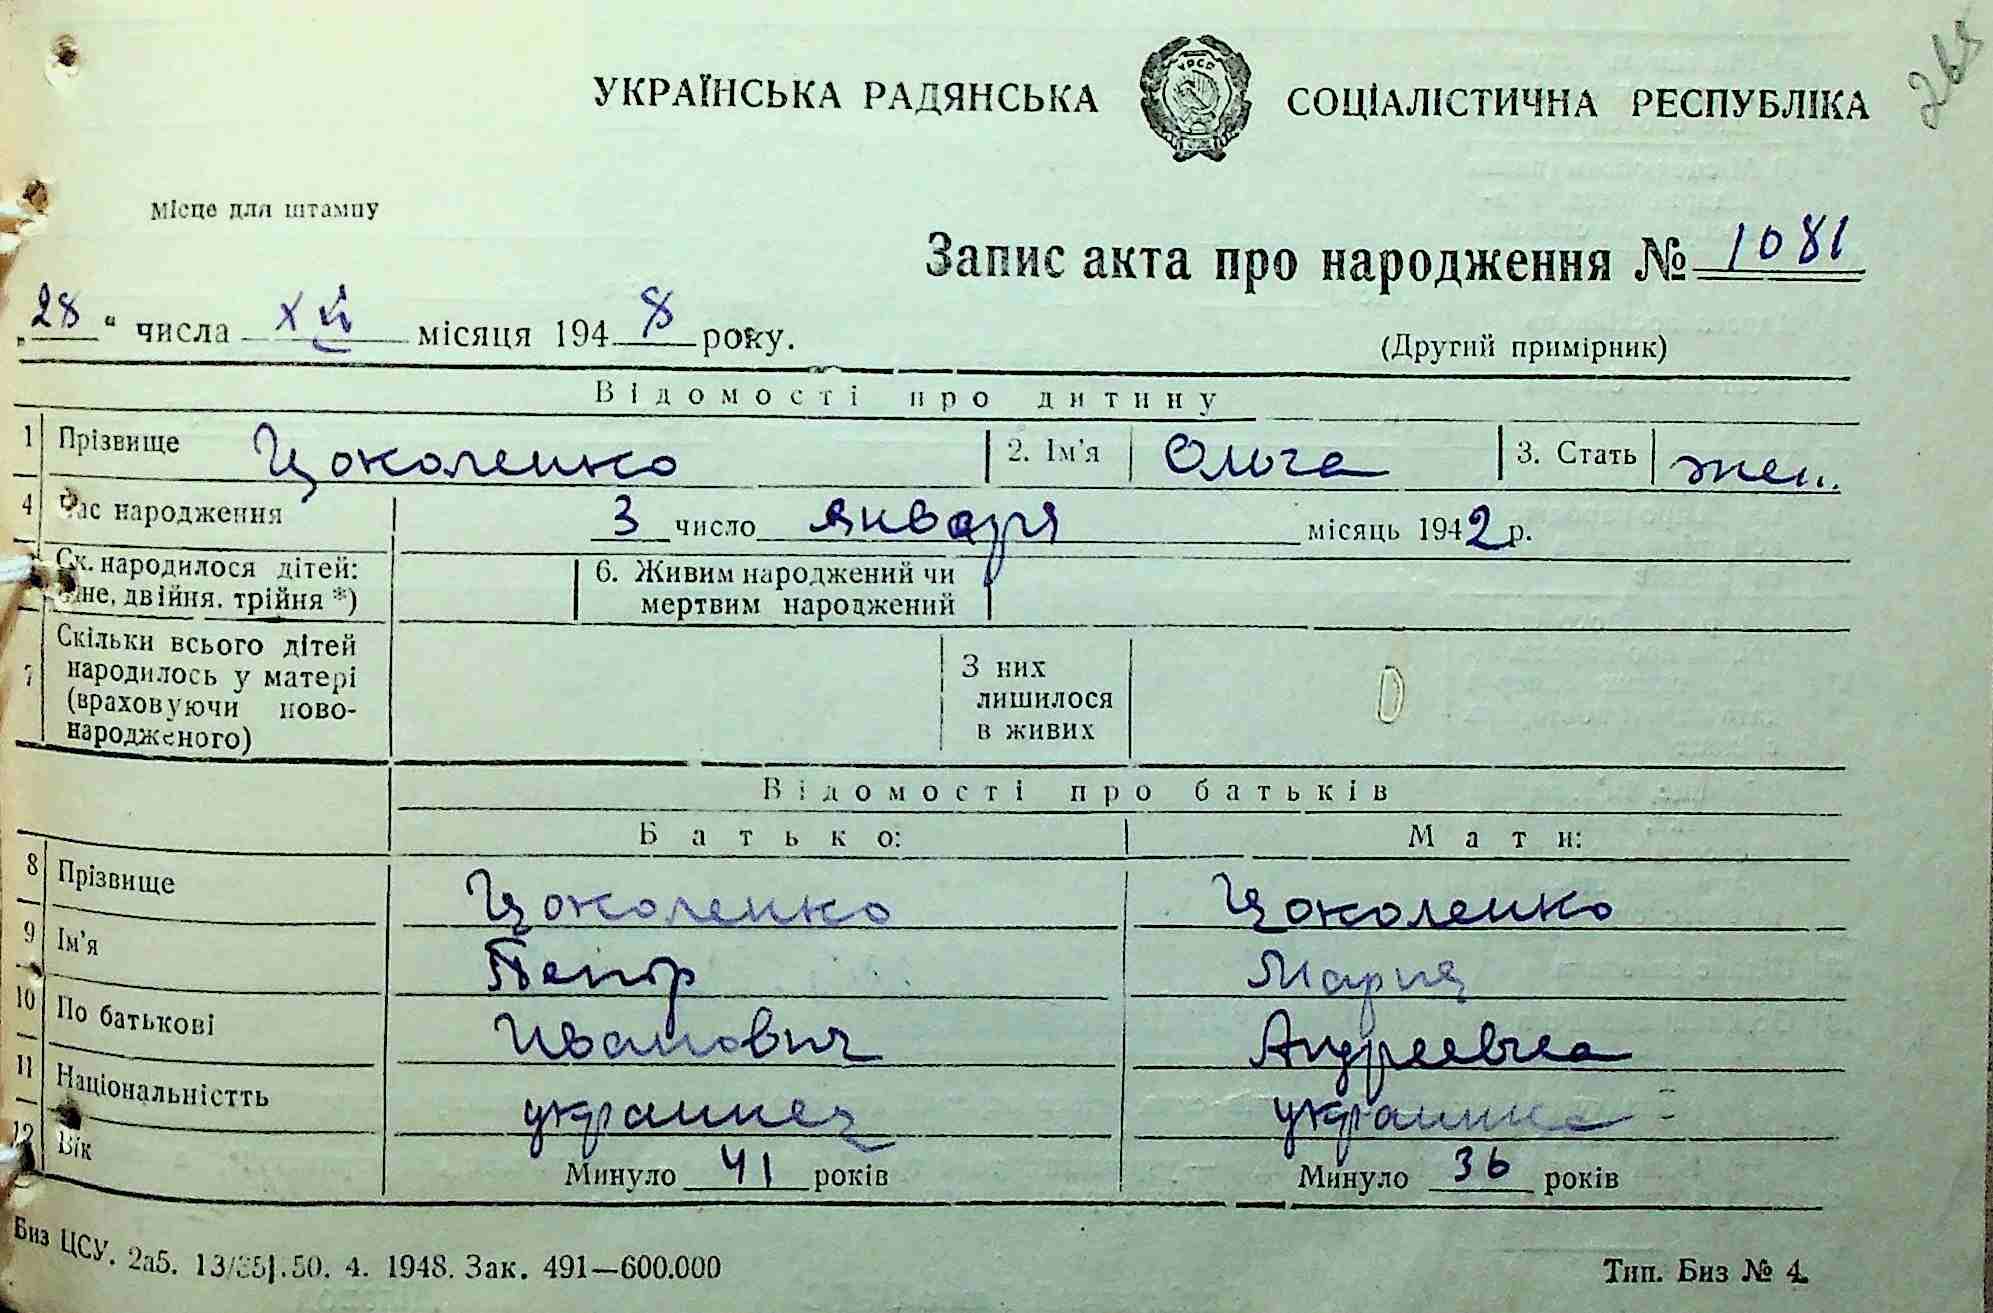 265
УКРАЇНСЬКА РАДЯНСЬКА СОЦІАЛІСТИЧНА РЕСПУБЛІКА
УРСР
Місце для штампу
Запис акта про народження № 1081
„28“ числа XII місяця 1948 року.
(Другий примірник)
Відомості про дитину
1 Прізвище Цоколенко 2. Ім'я Ольга 3. Стать жен.
4 Час народження 3 число января місяць 1942 р.
Ск. народилося дітей: одне, двійня, трійня *) 6. Живим народжений чи
мертвим народжений
7 Скільки всього дітей
народилось у матері
(враховуючи ново-
народженого)
З них
лишилося
в живих
Відомості про батьків
Батько: Мати:
8 Прізвище Цоколенко Цоколенко
9 Ім'я Петр Мария
10 По батькові Иванович Андреевна
11 Національністть украинец украинка
12 Вік Минуло 41 років Минуло 36 років
Биз ЦСУ. 2а5. 13/35|.50. 4. 1948. Зак. 491—600.000 Тип. Биз № 4.